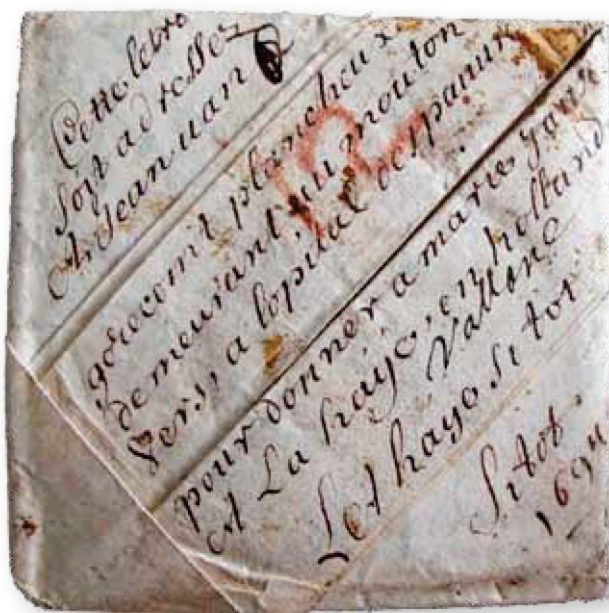 Cette letre
soit adressez
A Jean uan
gorecom it plancheux
demeurant, au mouton
vers, a lopital des pauur
pour donner a marie,
A La haÿe, en holland
vallone
Let haye si tot
si tot
1694
12